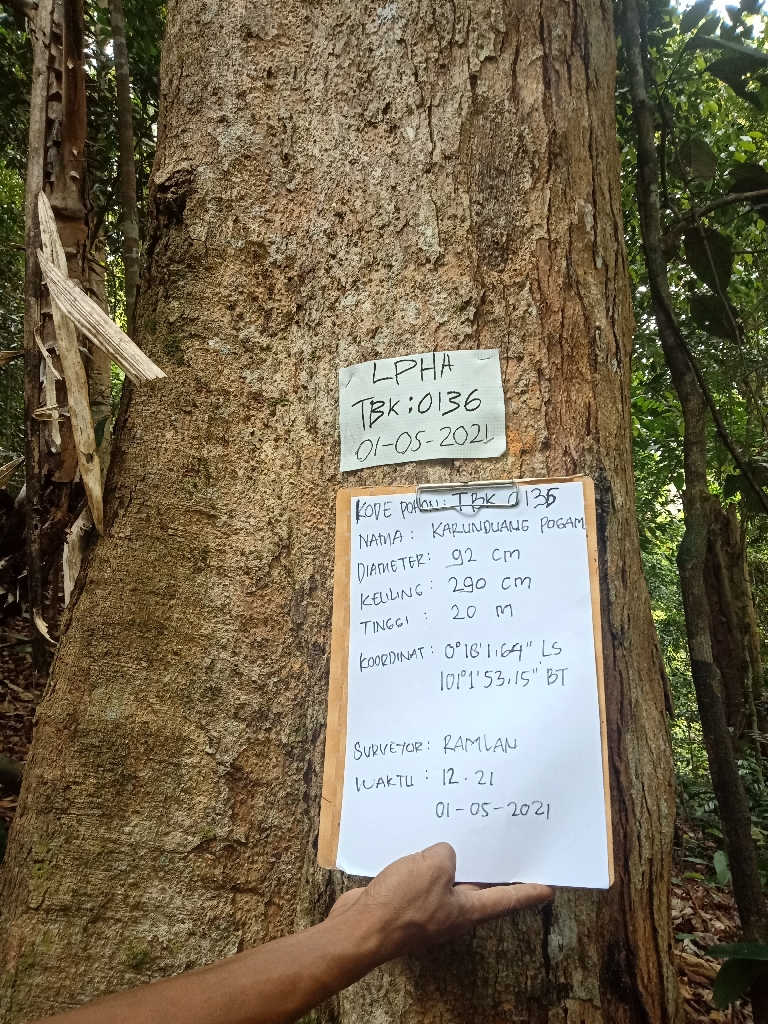 LPHA
TBK:0136
01-05-2021
KODE POHON: TBK 0136
NAMA: KARUNDUANG POGAM
DIAMETER: 92 cm
KELILING: 290 cm
TINGGI: 20 m
KOORDINAT: 0°16'1.64" LS
101°1'53.15" BT
SURVEYOR: RAMLAN
WAKTU: 12.21
01-05-2021